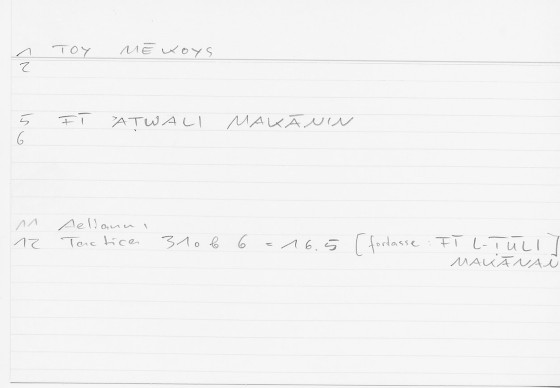 1 TOY MĒKOYS
2
5 FĪ ʾAṬWALI MAKĀNIN
6
11 Aelianus,
12 Tactica 310 b 6 = 16.5 [fortasse: FĪ L-ṬŪLI]
MAKĀNAN